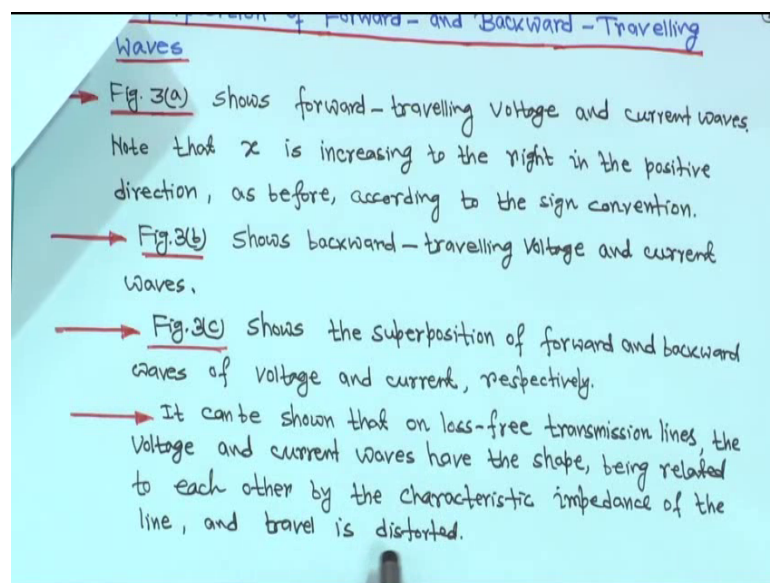 of Forward - and Backward - Travelling
Waves
Fig. 3(a) shows forward - travelling voltage and current waves.
Note that x is increasing to the right in the positive
direction, as before, according to the sign convention.
Fig. 3(b) shows backward - travelling voltage and current
waves.
Fig. 3(c) shows the superposition of forward and backward
waves of voltage and current, respectively.
It can be shown that on loss-free transmission lines, the
voltage and current waves have the shape, being related
to each other by the characteristic impedance of the
line, and travel is distorted.